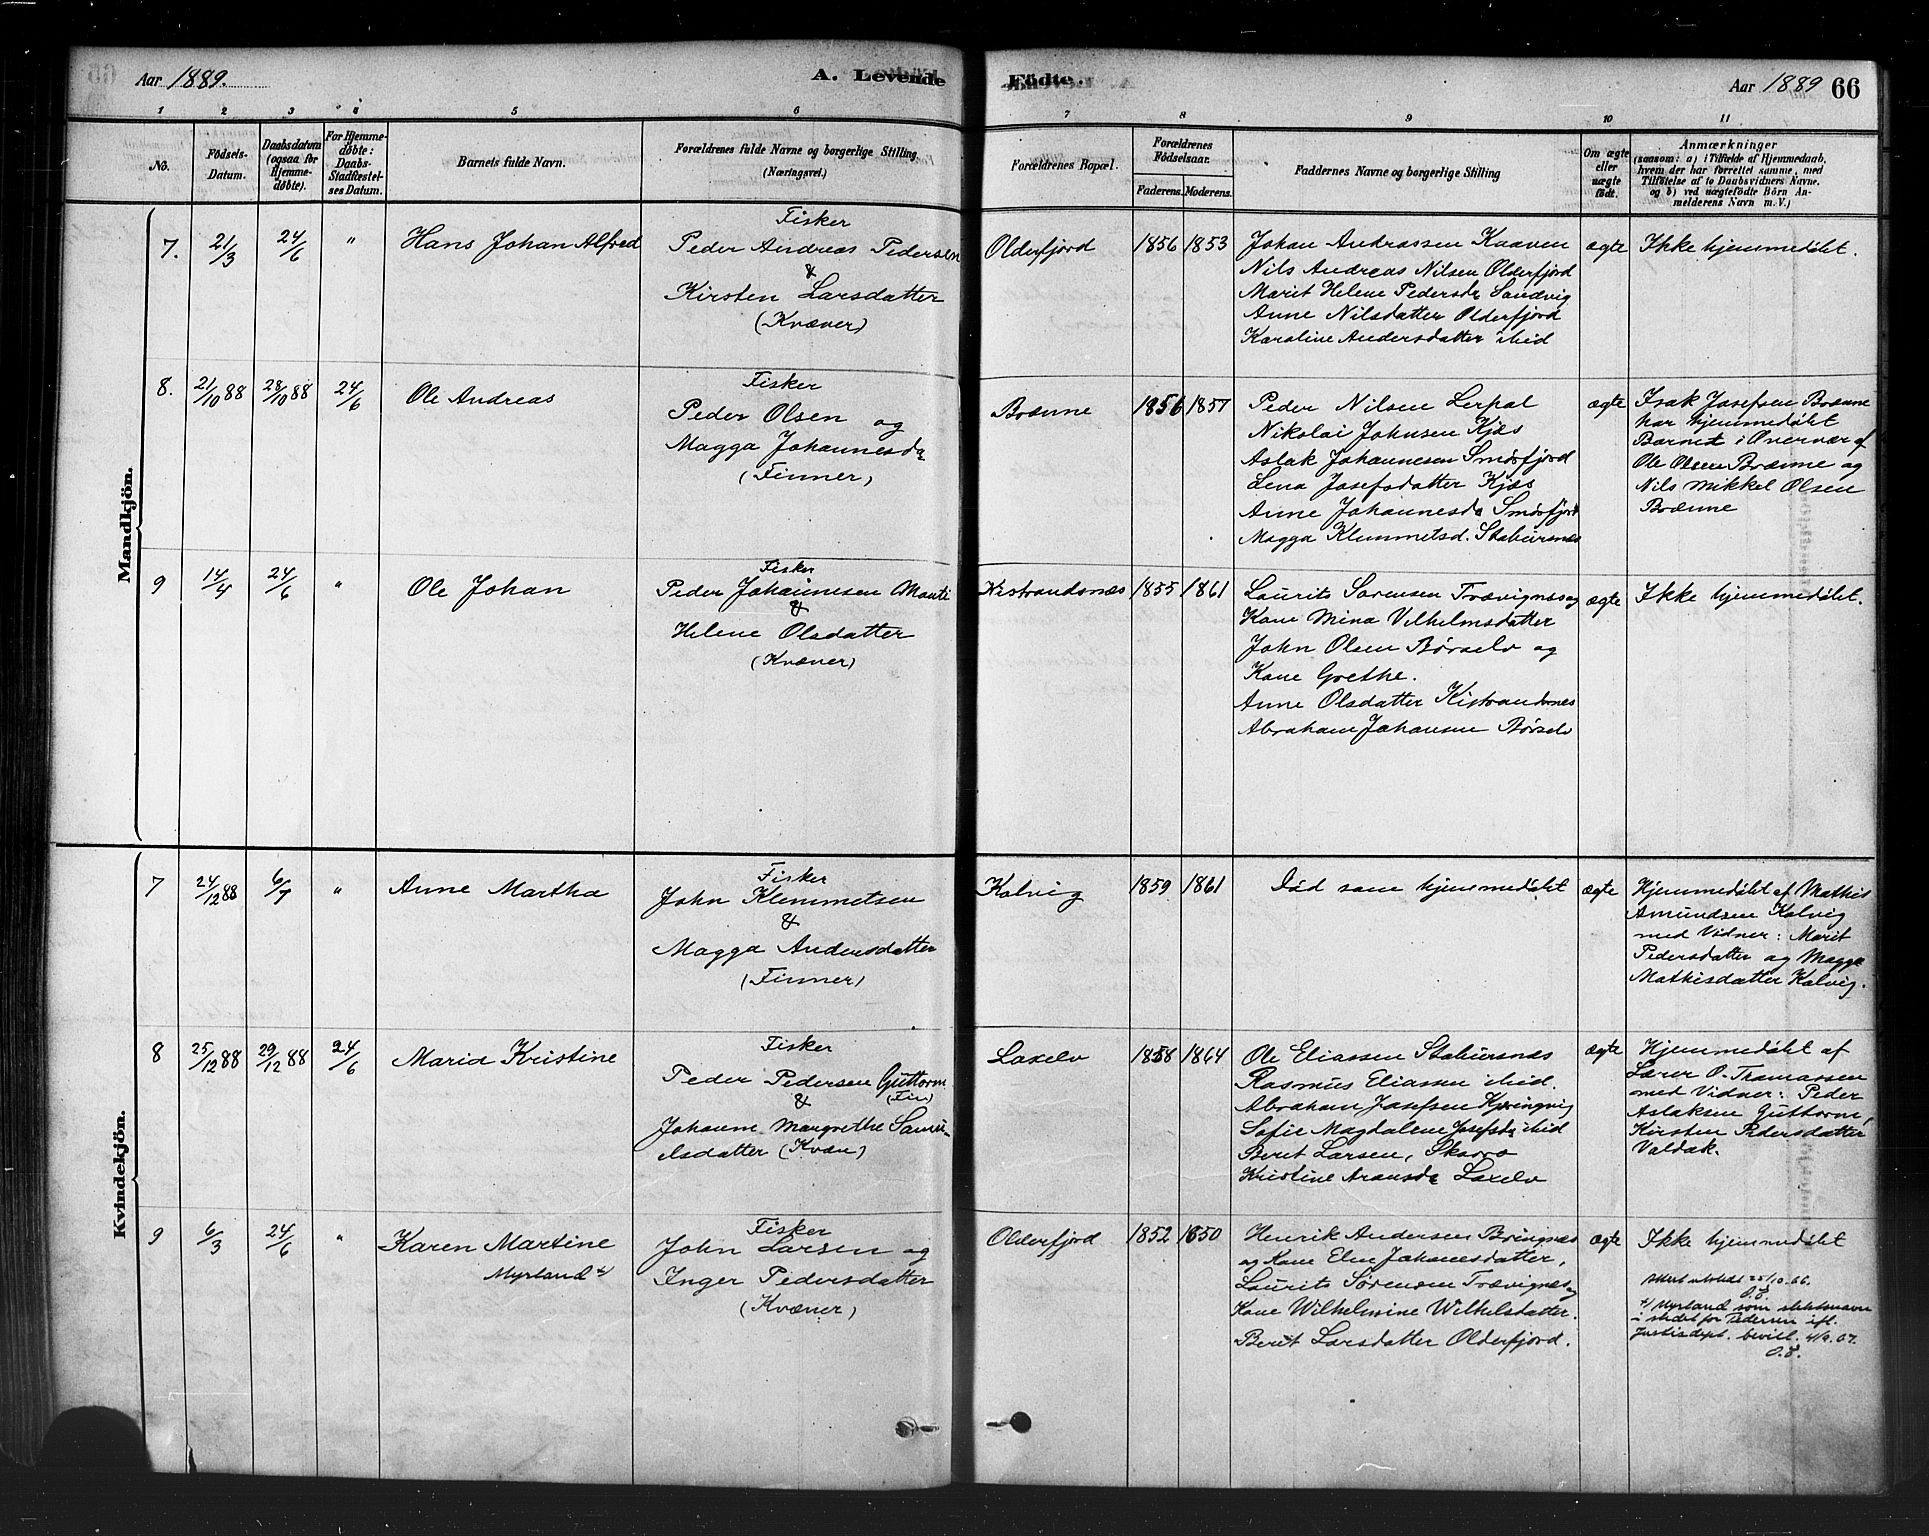 Aar 1889.
A. Levende
Födte.
Aar 1889 66
1 2 3 4 5 6 7 8 9 10 11
No.
Födsels-
Datum.
Daabsdatum
(ogsaa for
Hjemme-
döbte).
For Hjemme-
döbte:
Daabs-
Stadfæstel-
ses Datum.
Barnets fulde Navn.
Forældrenes fulde Navne og borgerlige Stilling.
(Næringsvei.)
Forældrenes Bopæl.
Forældrenes
Födselsaar.
Faderens. Moderens.
Faddernes Navne og borgerlige Stilling
Om ægte
eller
uægte
födt.
Anmærkninger
(saasom: a) i Tilfælde af Hjemmedaab,
hvem der har forrettet samme, med
Tilföielse af to Daabsvidners Navne.
og b) ved uægtefödte Börn An-
melderens Navn m. V.)
Mandkjön.
7. 21/3 24/6 " Hans Johan Alfred
Fisker
Peder Andreas Pedersen
&
Kirsten Larsdatter
(Kvæner)
Olderfjord 1856 1853
Johan Andreassen Kaaven
Nils Andreas Nilsen Olderfjord
Marit Helene Pedersdr Sandvig
Anne Nilsdatter Olderfjord
Karoline Andersdatter ibid
ægte Ikke hjemmedøbt.
8. 21/10 88 28/10 88 24/6 Ole Andreas
Fisker
Peder Olsen og
Magga Johannesdr
(Finner)
Brænne 1856 1857
Peder Nilsen Lerpal
Nikolai Johnsen Kjæs
Aslak Johannesen Smørfjord
Lena Josefsdatter Kjæs
Anne Johannesdr Smørfjord
Magga Klemmetsd. Stabursnæs
ægte Isak Josefsen Brænne
har hjemmedøbt
Barnet i Overvær af
Ole Olsen Brænne og
Nils Mikkel Olsen
Brænne
9 14/4 24/6 " Ole Johan
Fisker
Peder Johannesen Manti
&
Helene Olsdatter
(Kvæner)
Kistrandsnæs 1855 1861
Laurits Sørensen Trævignæs og
Kone Mina Vilhelmsdatter
John Olsen Børselv og
Kone Grethe.
Anne Olsdatter Kistrandsnes
Abraham Johansen Børselv
ægte Ikke hjemmedøbt.
Kvindekjön.
7 24/12 88 6/7 " Anne Martha
Fisker
John Klemmetsen
&
Magga Andersdatter
(Finner)
Kolvig 1859 1861
Død som hjemmedøbt
ægte Hjemmedøbt af Mathis
Amundsen Kolvig
med Vidner: Marit
Pedersdatter og Magga
Mathisdatter Kolvig.
8 25/12 88 29/12 88 24/6 Maria Kristine
Fisker
Peder Pedersen Guttorm
(Fin)
&
Johanne Margrethe Samu-
elsdatter (Kvæn)
Laxelv 1858 1864
Ole Eliassen Stabursnæs
Rasmus Eliassen ibid.
Abraham Josefsen Kjæringvig
Sofie Magdalene Josefsdr ibid
Beret Larsen, Skoro
Kristine Aronsdr Laxelv
ægte Hjemmedøbt af
Lærer O. Thomassen
med Vidner: Peder
Aslaksen Guttorm,
Kirsten Pedersdatter
Valdak.
9 6/3 24/6 " Karen Martine
Myrland +)
Fisker
John Larsen og
Inger Pedersdatter
(Kvæner)
Olderfjord 1852 1850
Henrik Andersen Bringnæs
og Kone Elen Johannesdatter,
Laurits Sørensen Trævignæs og
Kone Wilhelmine Wilhelsdatter.
Beret Larsdatter Olderfjord.
ægte Ikke hjemmedøbt
Attest utstedt 25/10.66.
+) Myrland som slektsnavn
i stedet for Pedersen ifl.
Justisdept. bevill. 4/9.67.